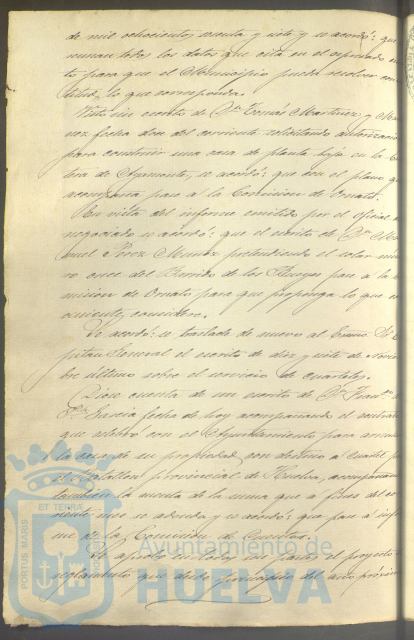 de mil ochocientos sesenta y siete y se acordó: que
reunan todos los datos que cita en el
to para que el Municipio pueda resolver con
lo que corresponda.
Visto un escrito de Dn. Tomás Martinez y
fecha dos del corriente solicitando autorización
para construir una casa de planta baja en la
de Ayamonte, se acordó: que con el plano que
acompaña pase á la Comision de Ornato.
En vista del informe emitido por el oficial
negociado se acordó: que el escrito de Dn. Ma
nuel Perez Muñoz pretendiendo el solar núme
ro once del Barrido de los Reyes pase á la
mision de Ornato para que proponga lo que
considere.
Se acordó: se traslade de nuevo al Excmo. Sr.
pitan General el escrito de diez y siete de Noviem
bre último sobre el servicio de cuarteles.
Diose cuenta de un escrito de D. Fran.co
Garcia fecha de hoy acompañando el contrato
que celebró con el Ayuntamiento para
la casa de su propiedad con destino á Cuartel
el Batallon provincial de Huelva, acompañan
tambien la cuenta de la suma que á fines del
se le adeuda y se acordó: que pase á infor
me de la Comision de Cuentas.
el proyecto
reglamento que debe principiar del año próximo
PORTUS MARIS
ET TERRÆ
Ayuntamiento de
HUELVA